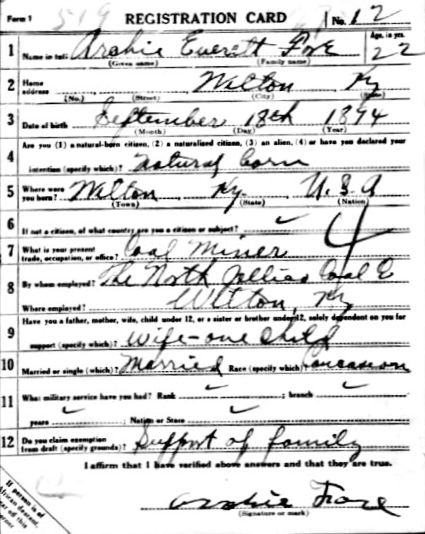 Form 1 519 REGISTRATION CARD No. 12
1 Name in full Archie Everett Foxe Age, in yrs. 22
(Given name) (Family name)
2 Home address Wilton Ky
(No.) (Street) (City) (State)
3 Date of birth September 18th 1894
(Month) (Day) (Year)
Are you (1) a natural-born citizen, (2) a naturalized citizen, (3) an alien, (4) or have you declared your
4 intention (specify which)? Natural born
5 Where were you born? Wilton Ky. U.S.A
(Town) (State) (Nation)
6 If not a citizen, of what country are you a citizen or subject?
7 What is your present trade, occupation, or office? Coal Miner 4
8 By whom employed? The North Jellico Coal C
Where employed? Wilton, Ky
Have you a father, mother, wife, child under 12, or a sister or brother under 12, solely dependent on you for
9 support (specify which)? Wife-one child
10 Married or single (which)? Married Race (specify which)? Caucasion
11 What military service have you had? Rank ; branch ;
years ; Nation or State
12 Do you claim exemption from draft (specify grounds)? Support of family
I affirm that I have verified above answers and that they are true.
Archie Foxe
(Signature or mark)
If person is of
African descent,